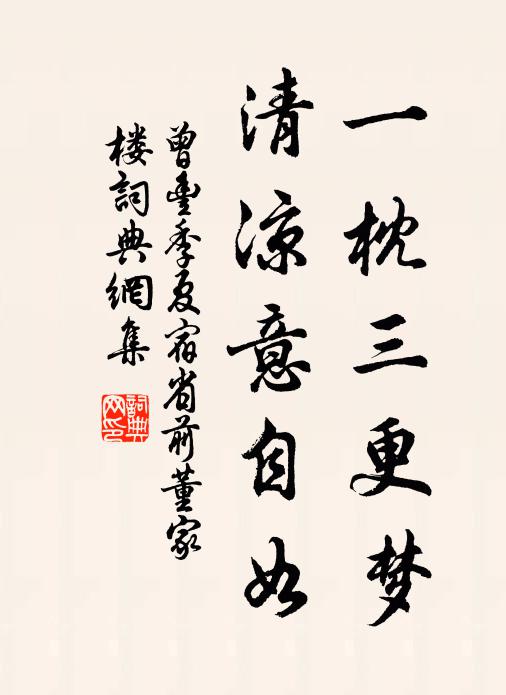 一枕三更梦
清凉意自如
曾丰季夏宿省前董家
楼詞典網集
詞典网印